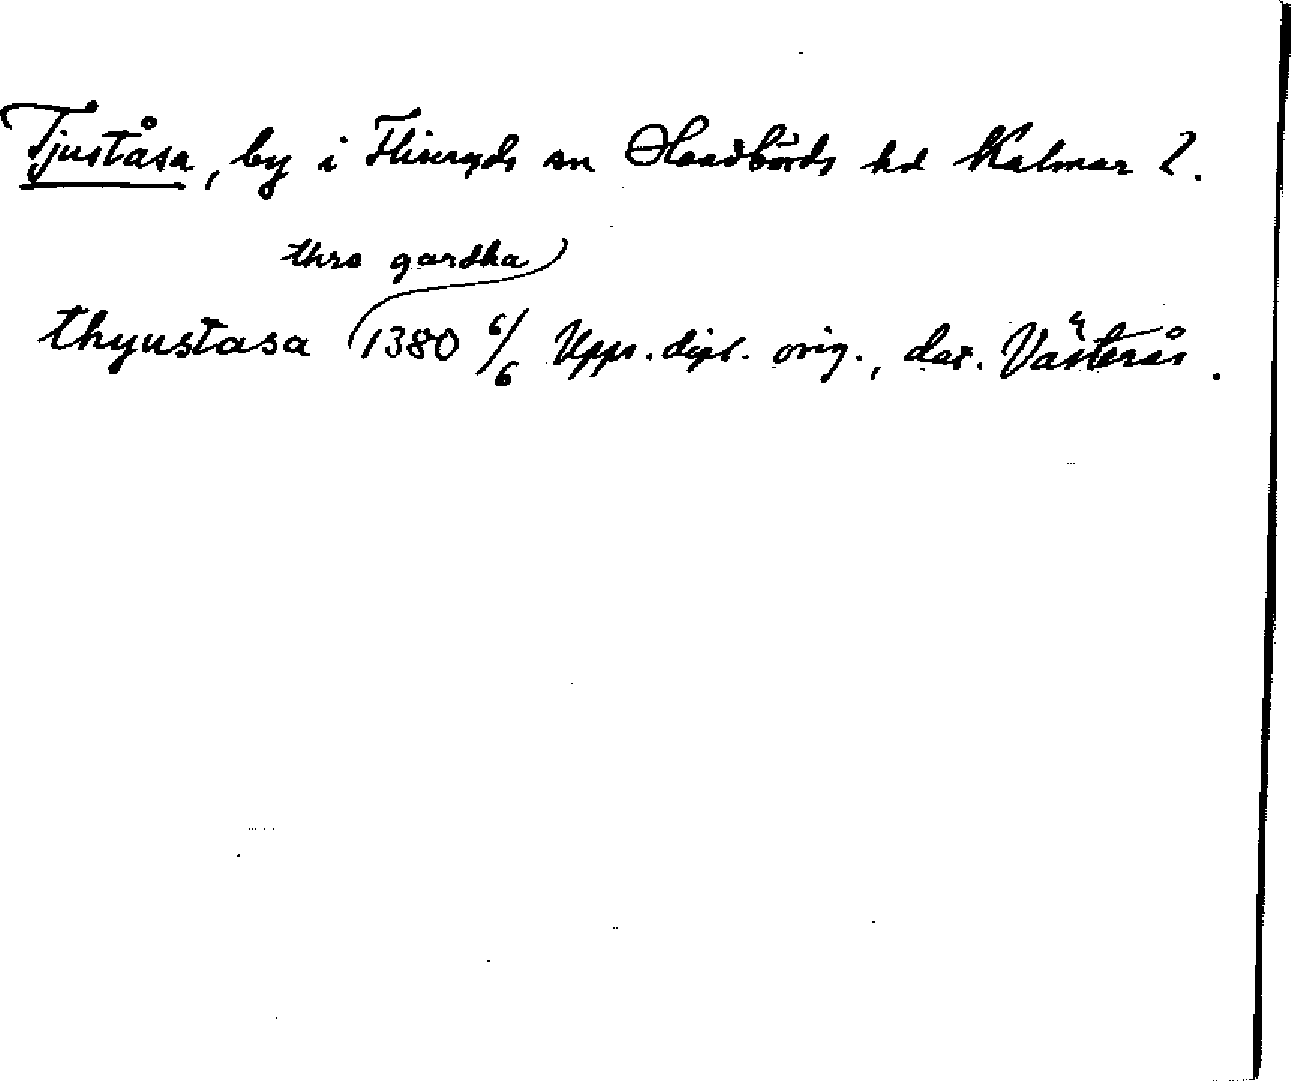 Tjuståsa, by i Fliseryds sn Handbörds hd Kalmar l.
thre gardha
thyustasa 1380 6/6 Upps. dipl. orig., dat. Västerås.